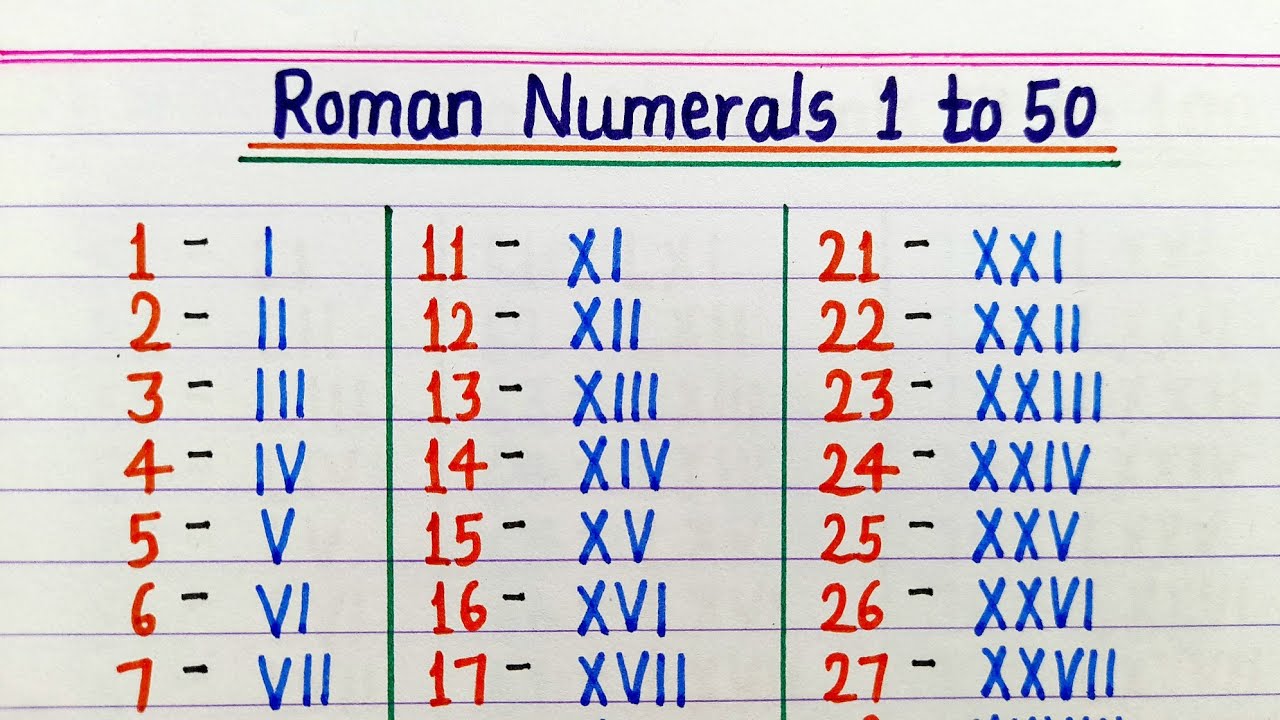 Roman Numerals 1 to 50
1 - I 11 - XI 21 - XXI
2 - II 12 - XII 22 - XXII
3 - III 13 - XIII 23 - XXIII
4 - IV 14 - XIV 24 - XXIV
5 - V 15 - XV 25 - XXV
6 - VI 16 - XVI 26 - XXVI
7 - VII 17 - XVII 27 - XXVII